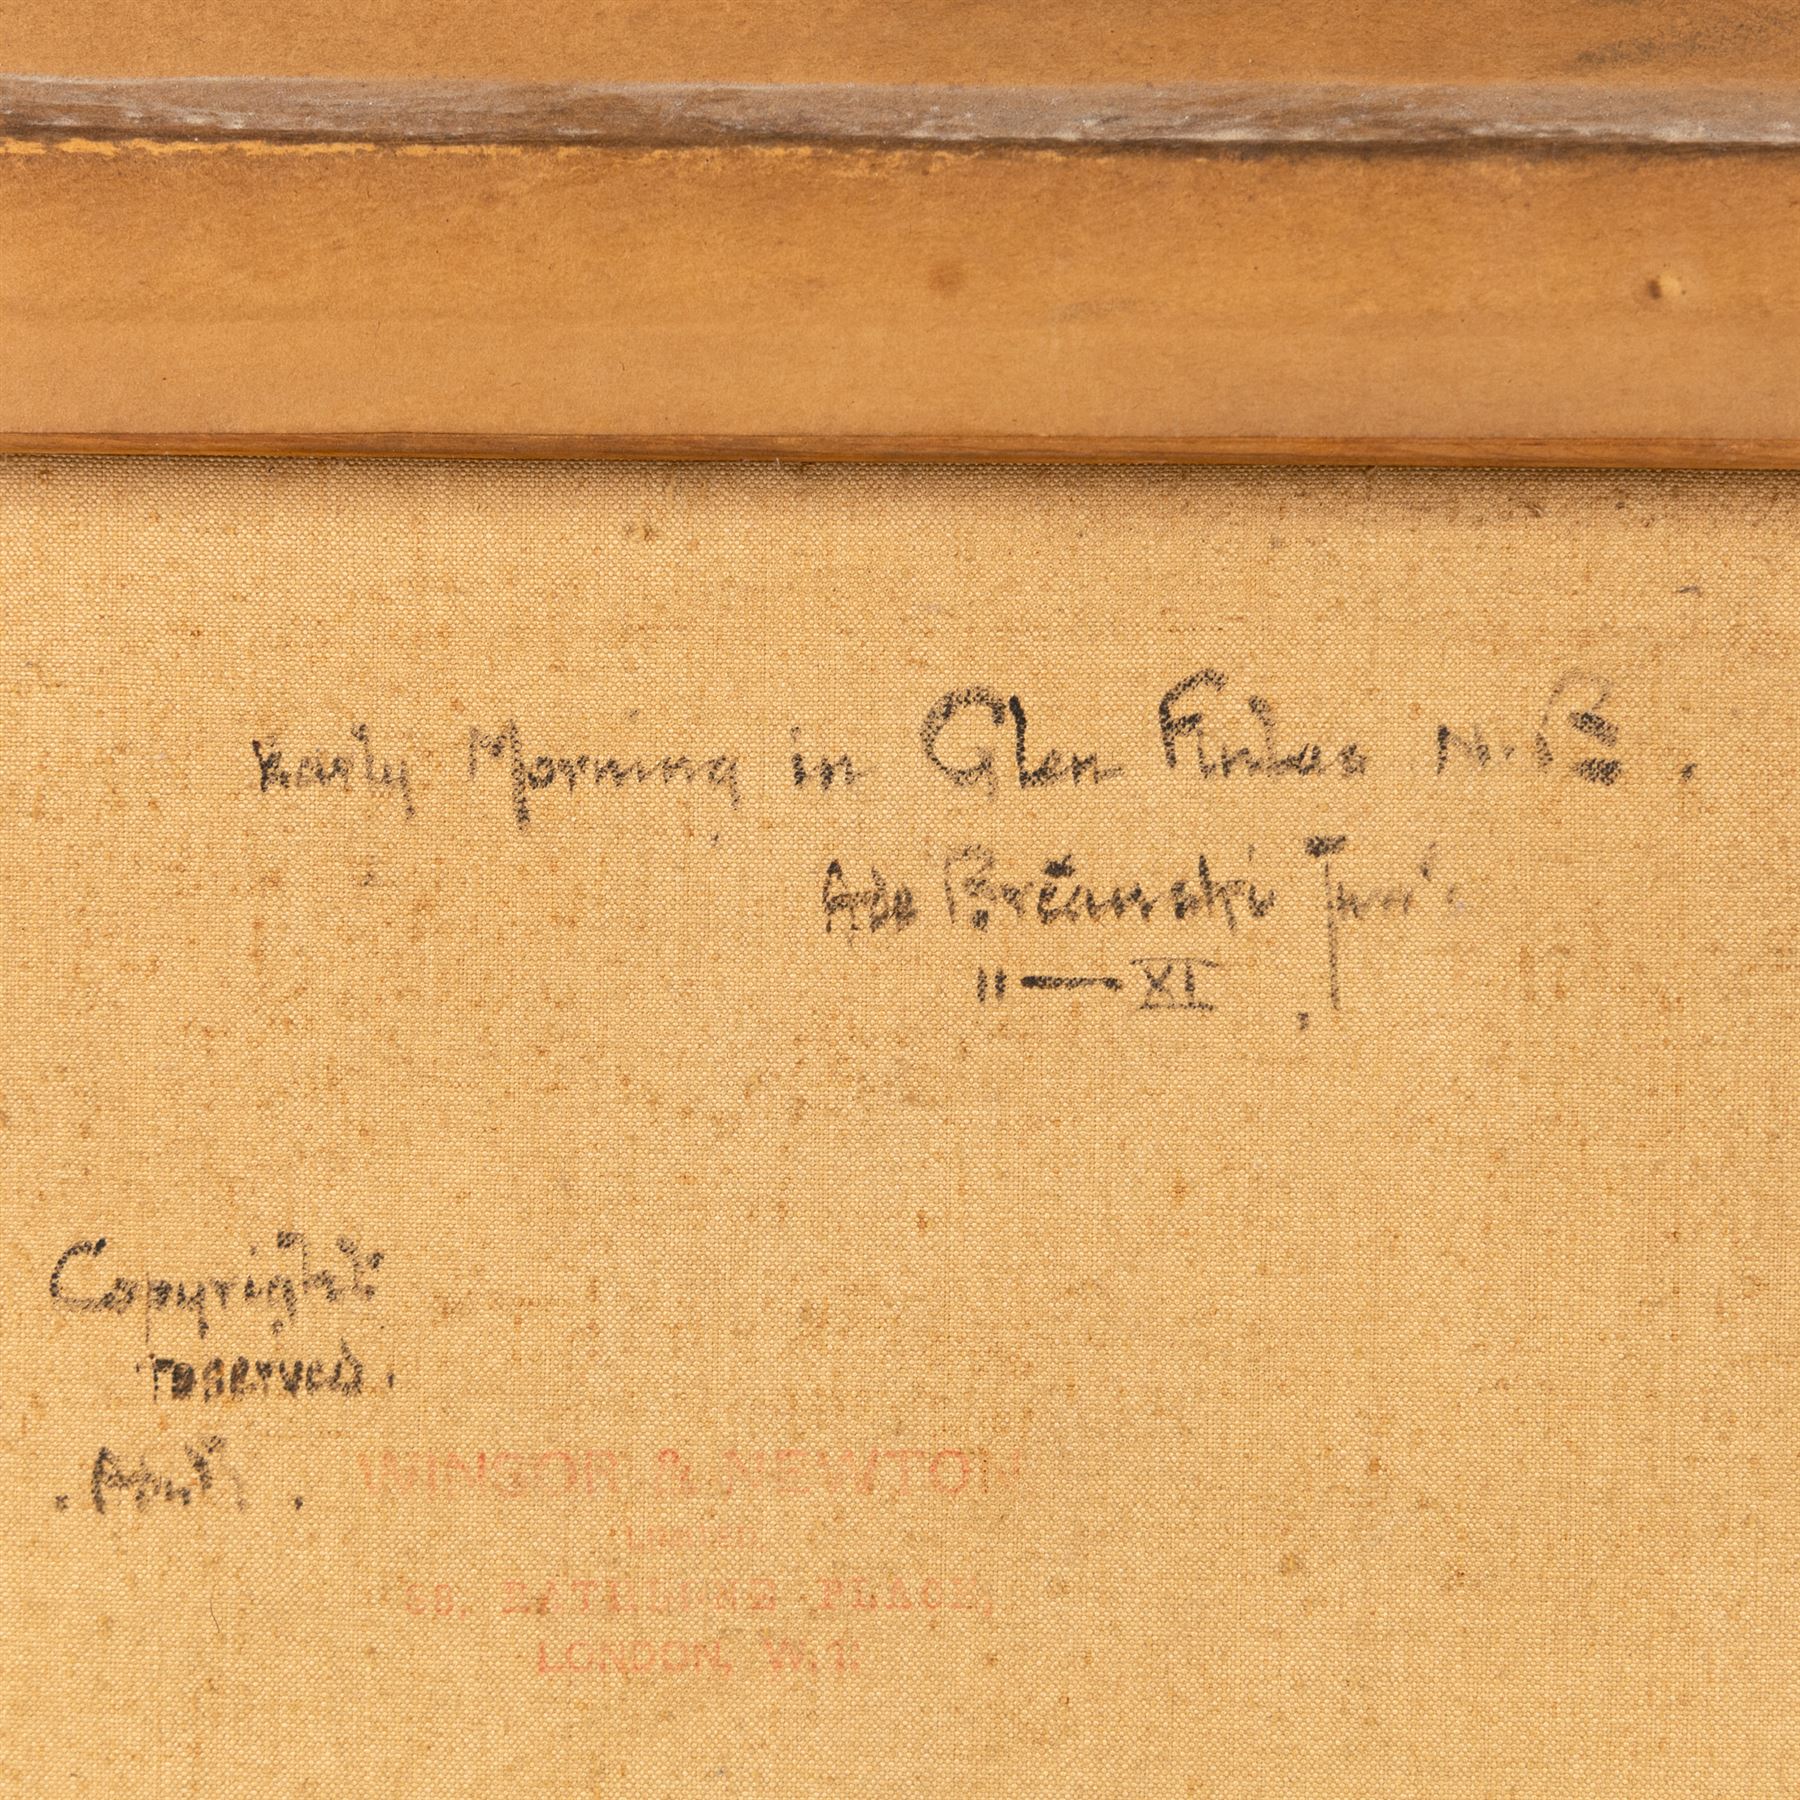 Early Morning in Glen Finlas N.B.
Ado Breanski Jun'r
11 — XI
Copyright
reserved.
WINSOR & NEWTON
LIMITED,
38, RATHBONE PLACE,
LONDON, W.1.